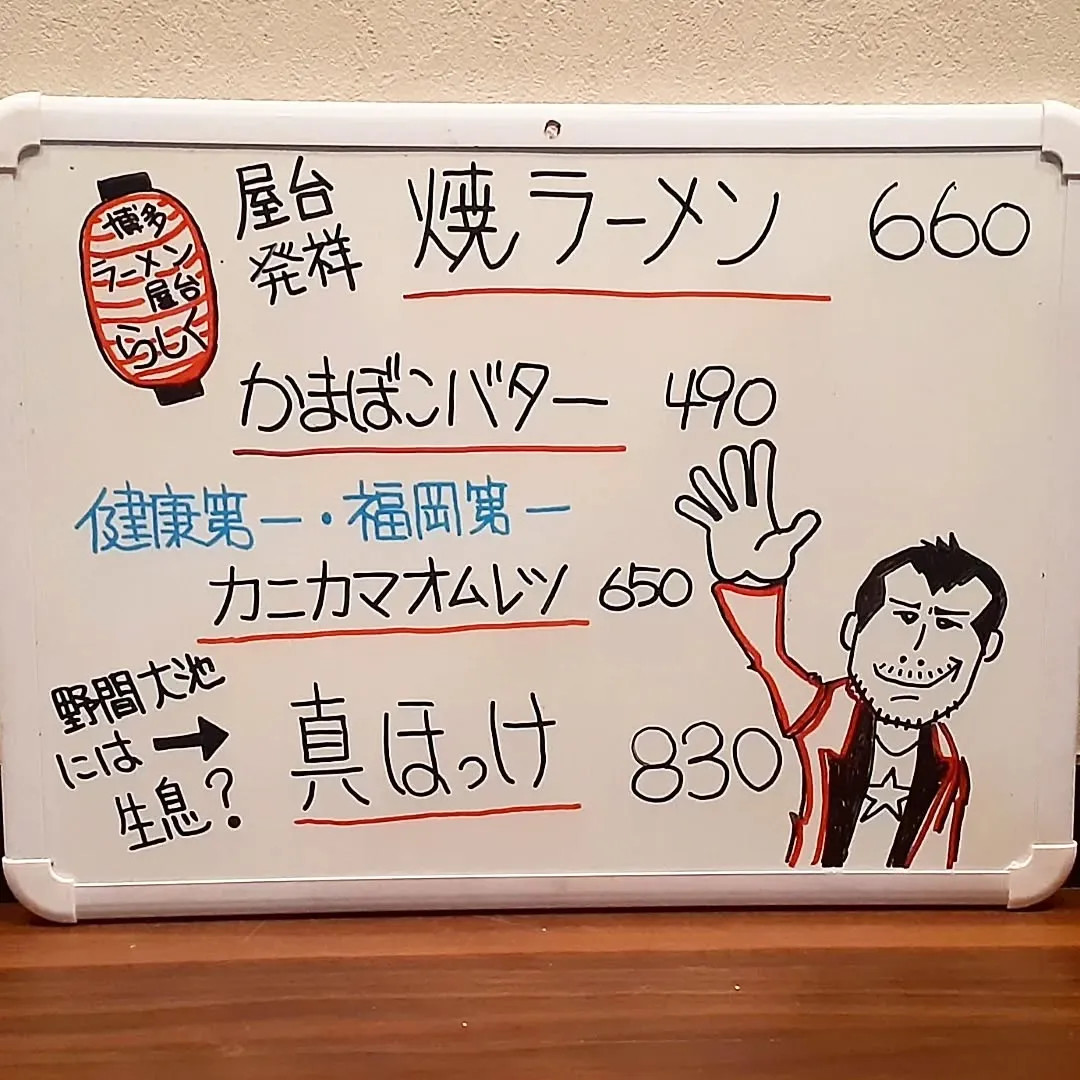 博多
ラーメン
屋台
らしく
屋台
発祥
焼ラーメン 660
かまぼこバター 490
健康第一・福岡第一
カニカマオムレツ 650
野間大池
には→
生息?
真ほっけ 830